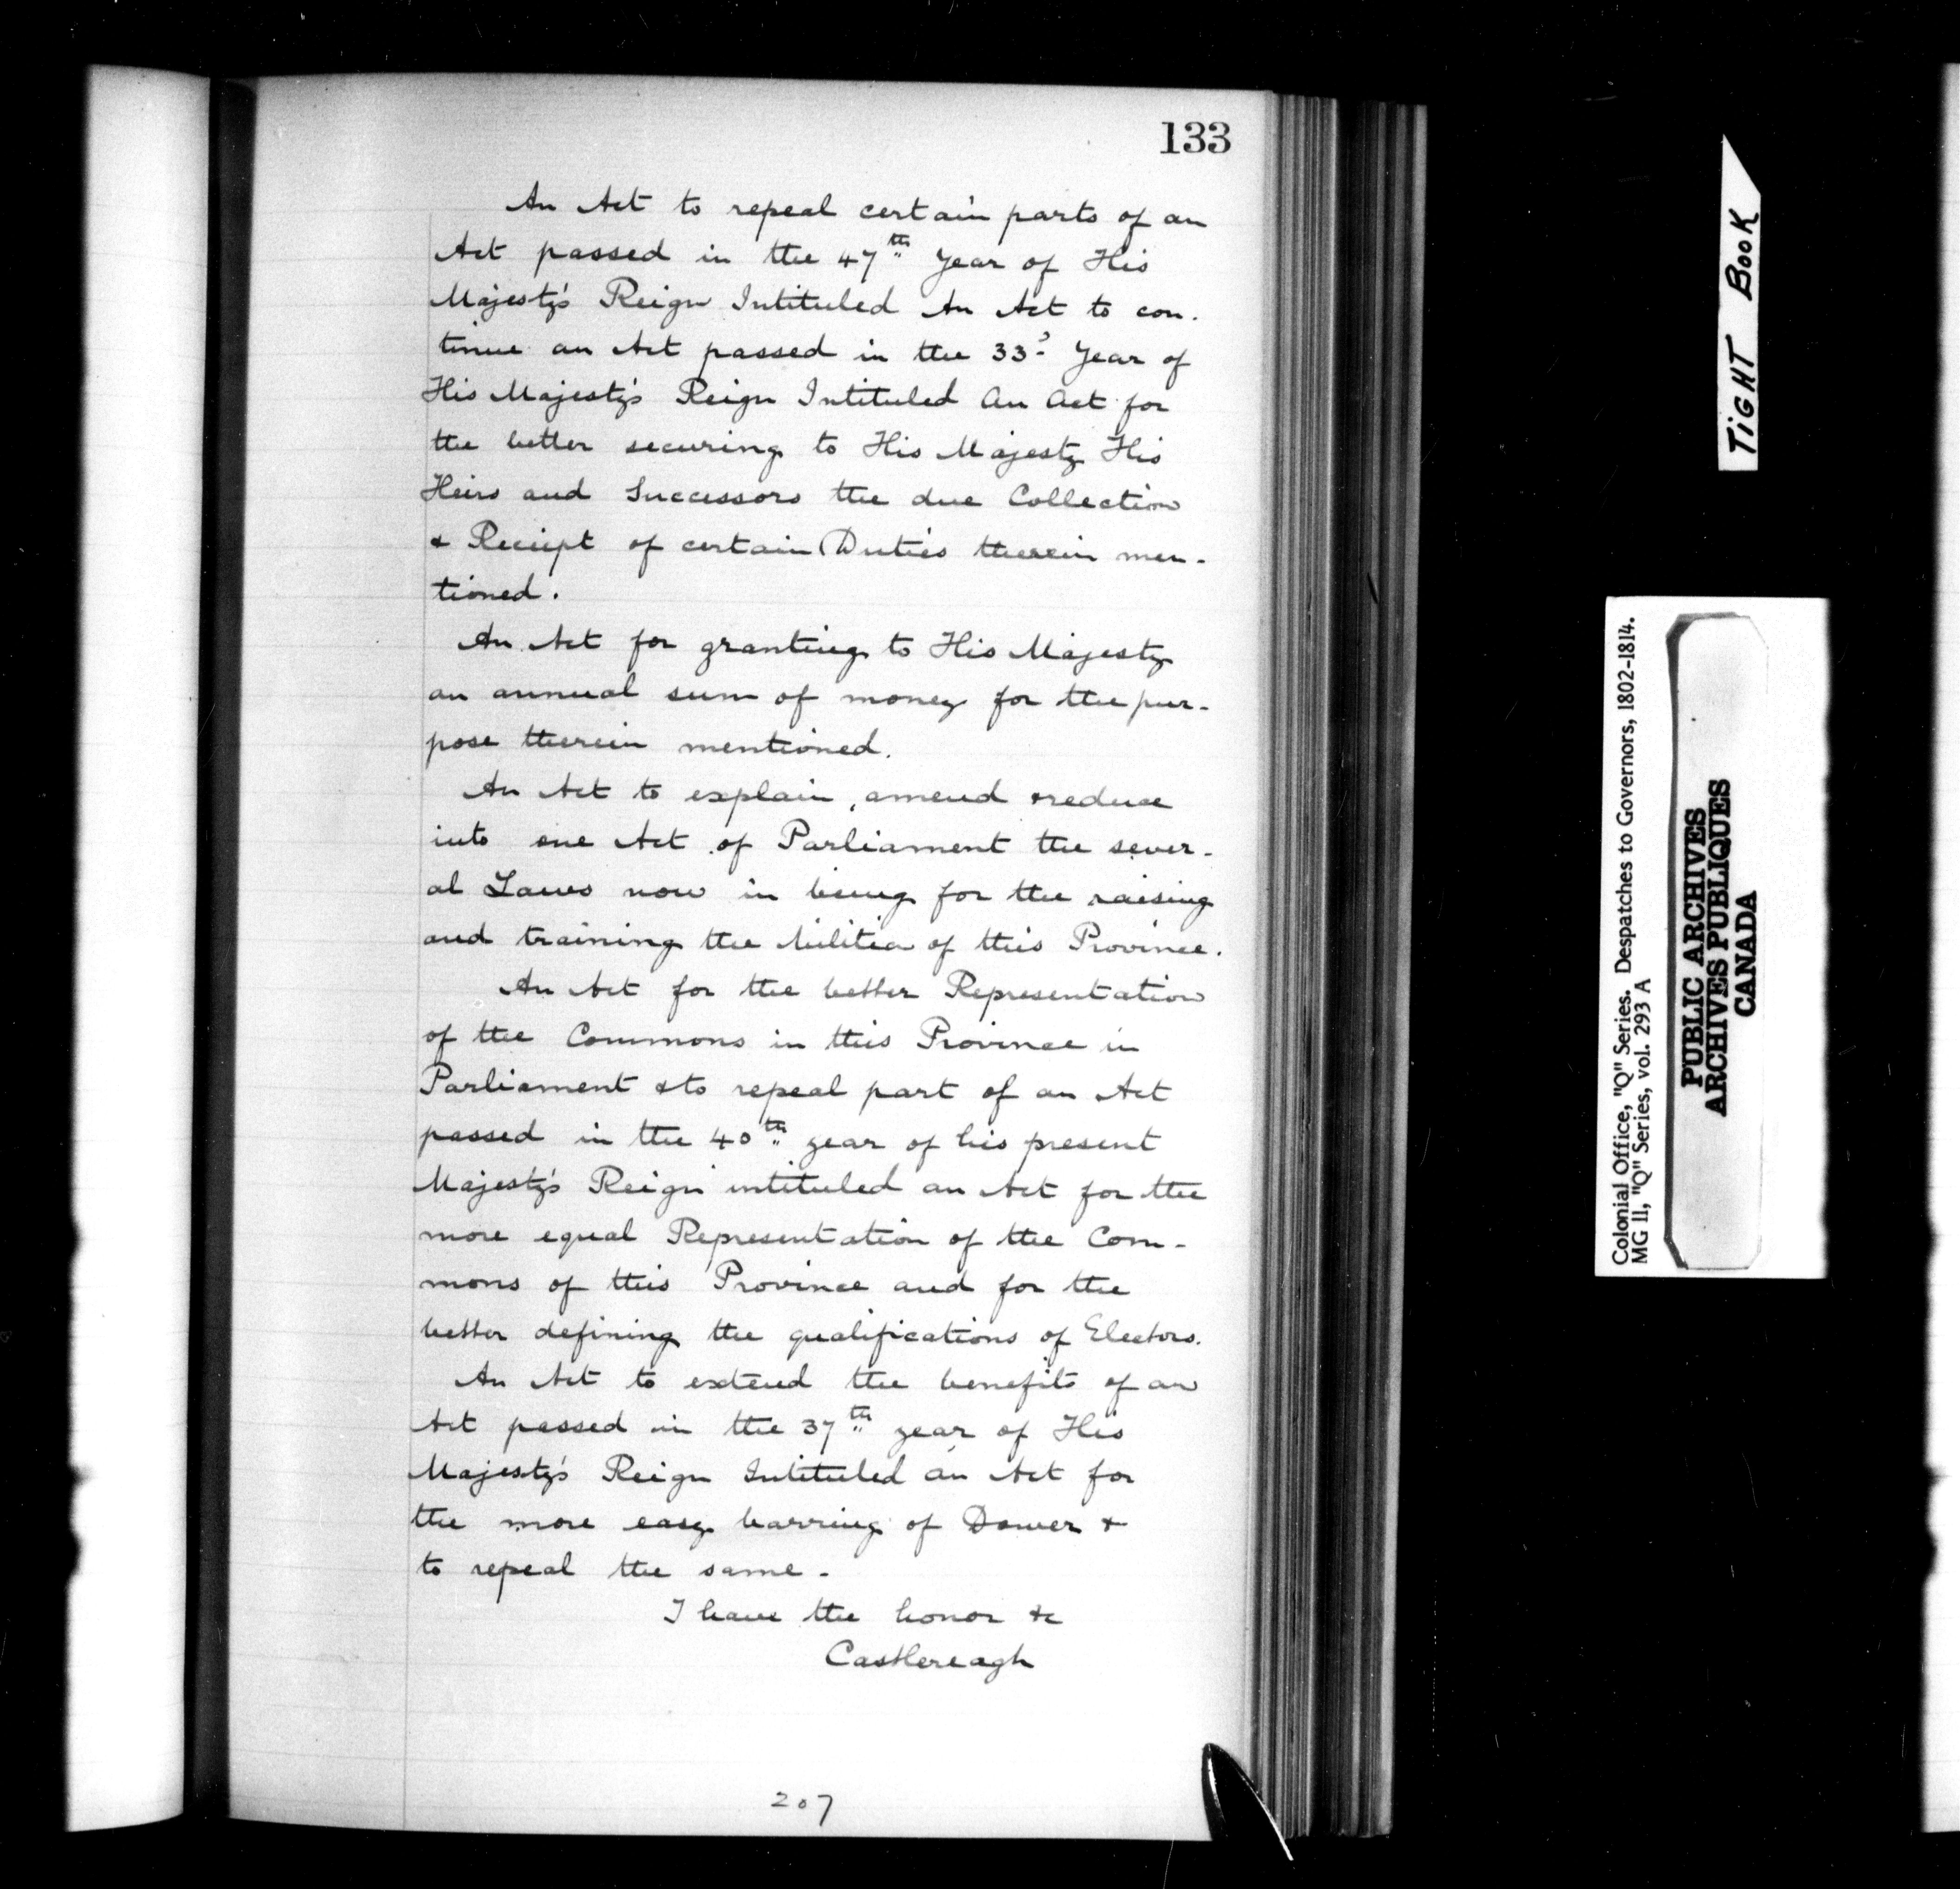 133
An Act to repeal certain parts of an
Act passed in the 47th Year of His
Majesty's Reign Intituled An Act to con-
tinue an Act passed in the 33d Year of
His Majesty's Reign Intituled An Act for
the better securing to His Majesty His
Heirs and Successors the due Collection
& Receipt of certain Duties therein men-
tioned.
An Act for granting to His Majesty
an annual sum of money for the pur-
pose therein mentioned.
An Act to explain, amend & reduce
into one Act of Parliament the sever-
al Laws now in being for the raising
and training the Militia of this Province.
An Act for the better Representation
of the Commons in this Province in
Parliament & to repeal part of an Act
passed in the 40th year of his present
Majesty's Reign intituled an Act for the
more equal Representation of the Com-
mons of this Province and for the
better defining the qualifications of Electors.
An Act to extend the benefits of an
Act passed in the 37th year of His
Majesty's Reign Intituled an Act for
the more easy barring of Dower &
to repeal the same -
I have the honor &c
Castlereagh
207
TiGHT BOOK
Colonial Office, "Q" Series. Despatches to Governors, 1802-1814.
MG 11, "Q" Series, vol. 293 A
PUBLIC ARCHIVES
ARCHIVES PUBLIQUES
CANADA